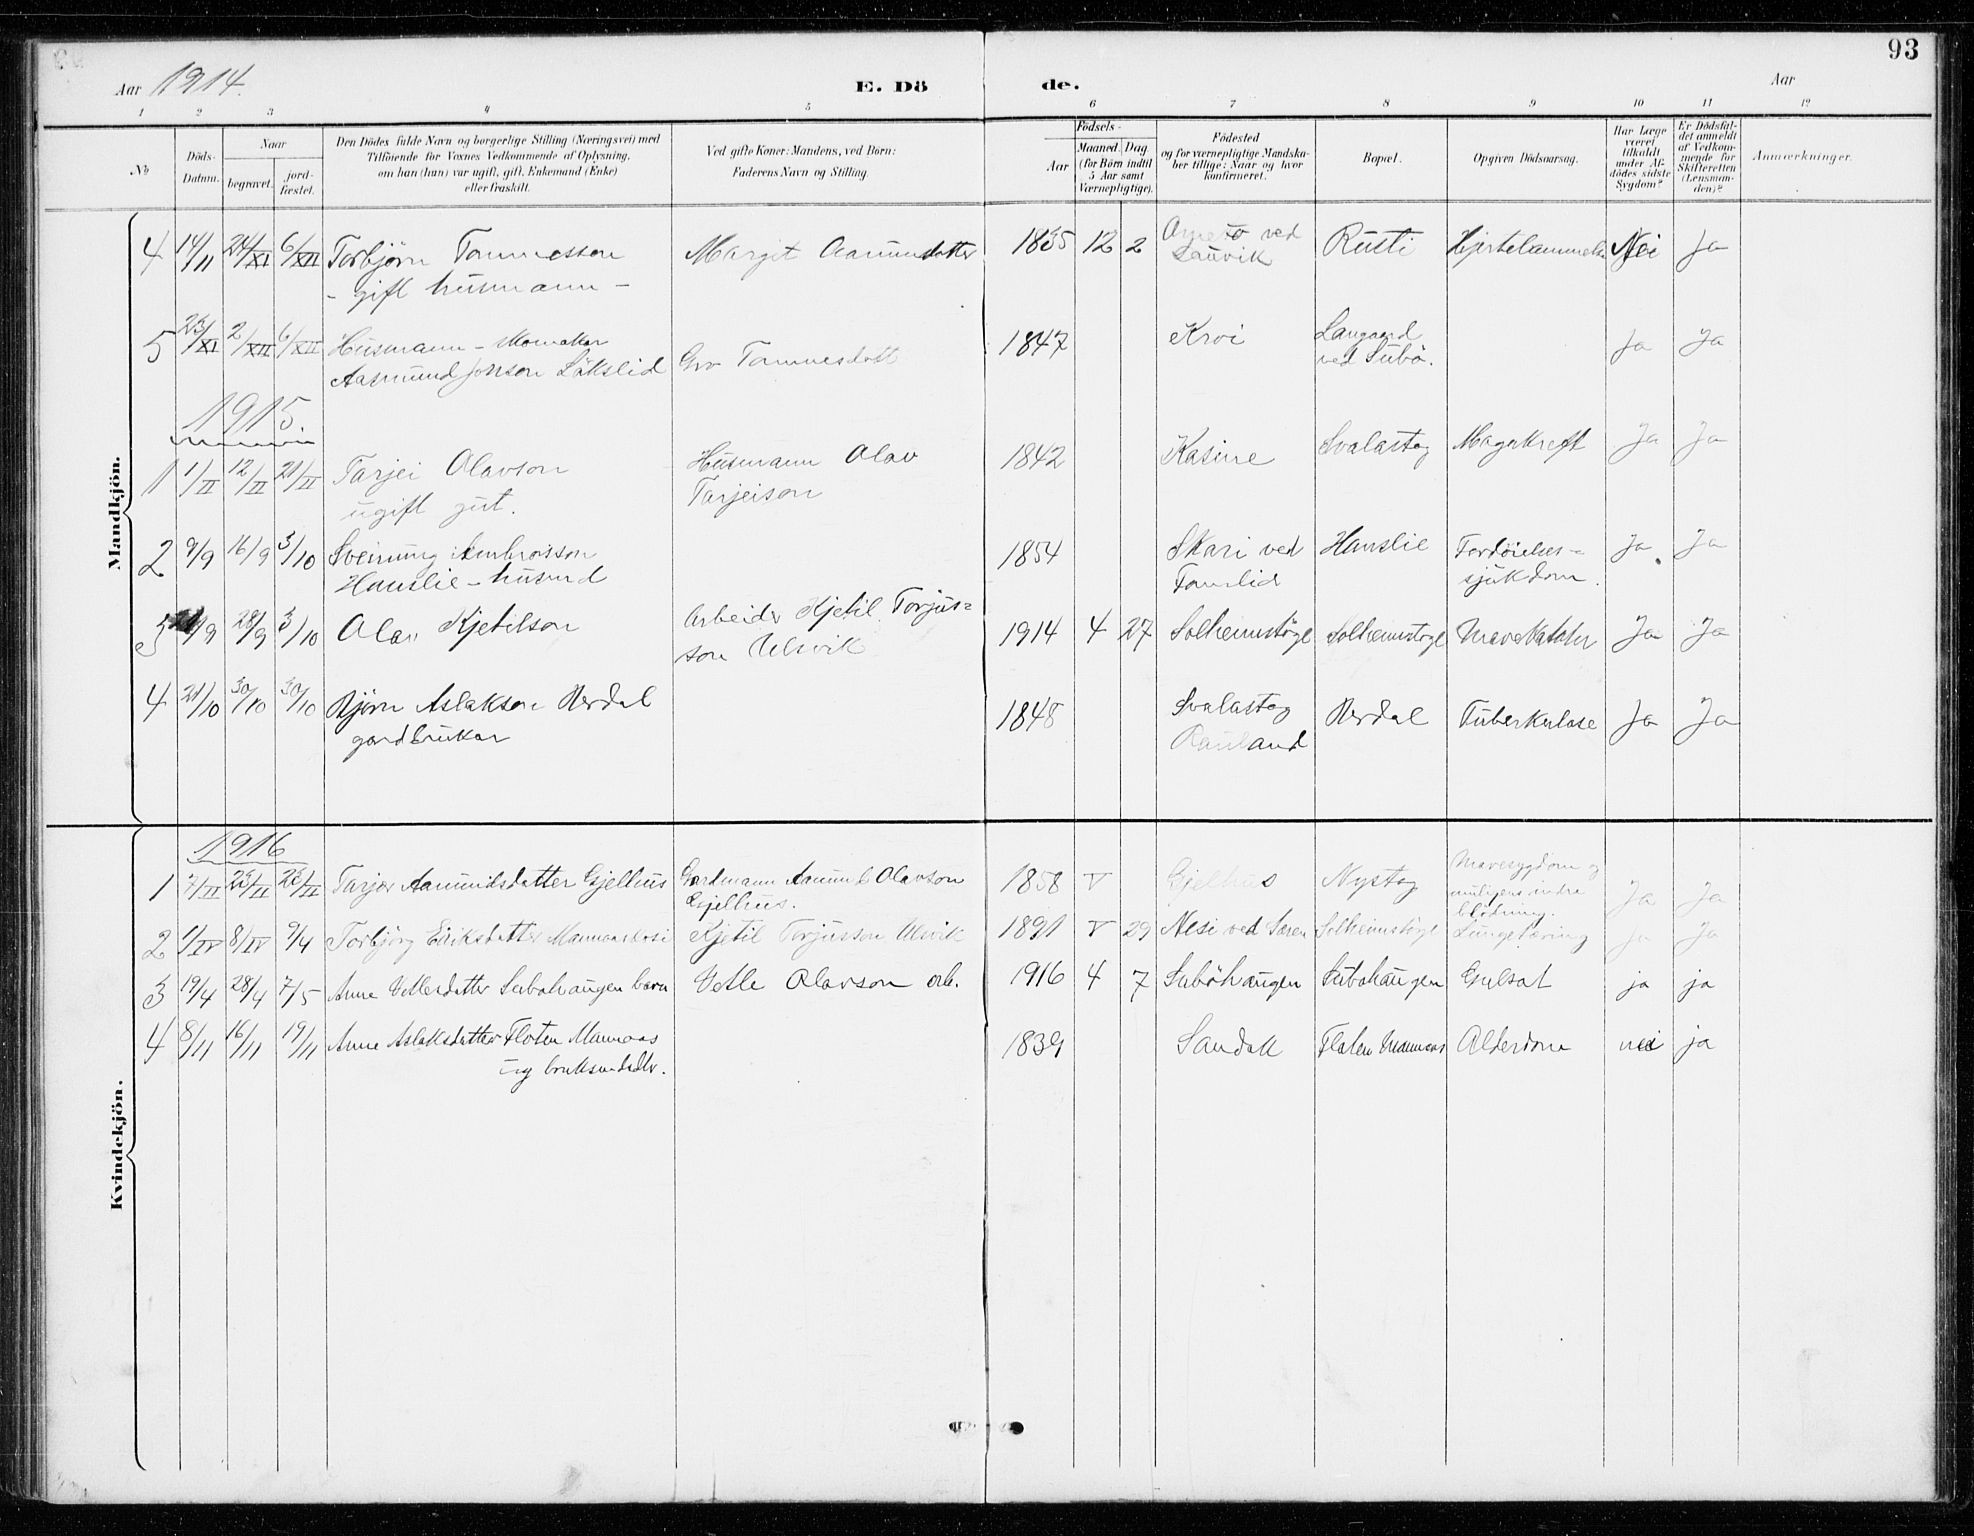 93
Aar 1914.
E. Döde.
Aar
1 2 3 4 5 6 7 8 9 10 11 12
No.
Döds-Datum.
Naar
begravet.
jord-fæstet.
Den Dödes fulde Navn og borgerlige Stilling (Næringsvei) med
Tilföiende for Voxnes Vedkommende af Oplysning,
om han (hun) var ugift, gift, Enkemand (Enke)
eller fraskilt.
Ved gifte Koner: Mandens, ved Börn:
Faderens Navn og Stilling.
Födsels-
Aar
Maaned. Dag
(for Börn indtil
5 Aar samt
Værnepligtige).
Födested
og for værnepligtige Mandska-
ber tillige: Naar og hvor
konfirmeret.
Bopæl.
Opgiven Dödsaarsag.
Har Læge
været
tilkaldt
under Af-
dödes sidste
Sygdom?
Er Dödsfal-
det anmeldt
af Vedkom-
mende for
Skifteretten
(Lensman-
den)?
Anmærkninger.
Mandkjön.
4 14/11 24/XI 6/XII Torbjörn Tommesson Margit Aamundsdatter 1835 12 2 ved Rusti Hjertelammelse Nei Ja
- gift husmann - Lauvik
5 23/XI 2/XII 6/XII Husmann - skomaker Gro Tommesdott 1847 Kroi Langaard Ja Ja
Aasmund Jonson Lökslid ved Subö.
1915.
1 1/II 12/II 21/II Tarjei Olavson Husmann Olav 1842 Kasine Svalastog Magekreft Ja Ja
ugift gut. Tarjeison
2 9/9 16/9 3/10 Sveinung Ambrosson 1854 Skari ved Hanslie Fordöielses- Ja Ja
Hanslie - husmd sjukdom.
3 /9 28/9 3/10 Olav Kjetilson Arbeider Kjetil Torjus- 1914 4 27 Solheimstöge Solheimstöge Mavekatahr Ja Ja
son Ulvvik
4 21/10 30/10 30/10 Björn Aslakson Nerdal 1848 Svalastog Nerdal Tuberkulose Ja Ja
gardbrukar Rauland
Kvindekjön.
1916
1 7/II 23/II 23/II Tarjer Aamundsdatter Gjelhus Gardmann Aamund Olavson 1858 V Gjelhus Nystog Mavesygdom og Ja Ja
Gjelhus. muligens indre
blödning.
2 1/IV 8/IV 9/4 Torbjörg Eiriksdatter Kjetil Torjusson Ulvik 1891 V 29 Nesi ved Solheimstöge Lungetæring Ja Ja
3 19/4 28/4 7/5 Anne Vetlesdatter Subohaugen barn Vetle Olavson arb. 1916 4 7 Suböhaugen Subohaugen Gulsot ja ja
4 8/11 16/11 19/11 Anne Aslaksdatter Floten Mannaas 1839 Sandok Flaten Mannaas Alderdom nei ja
ug